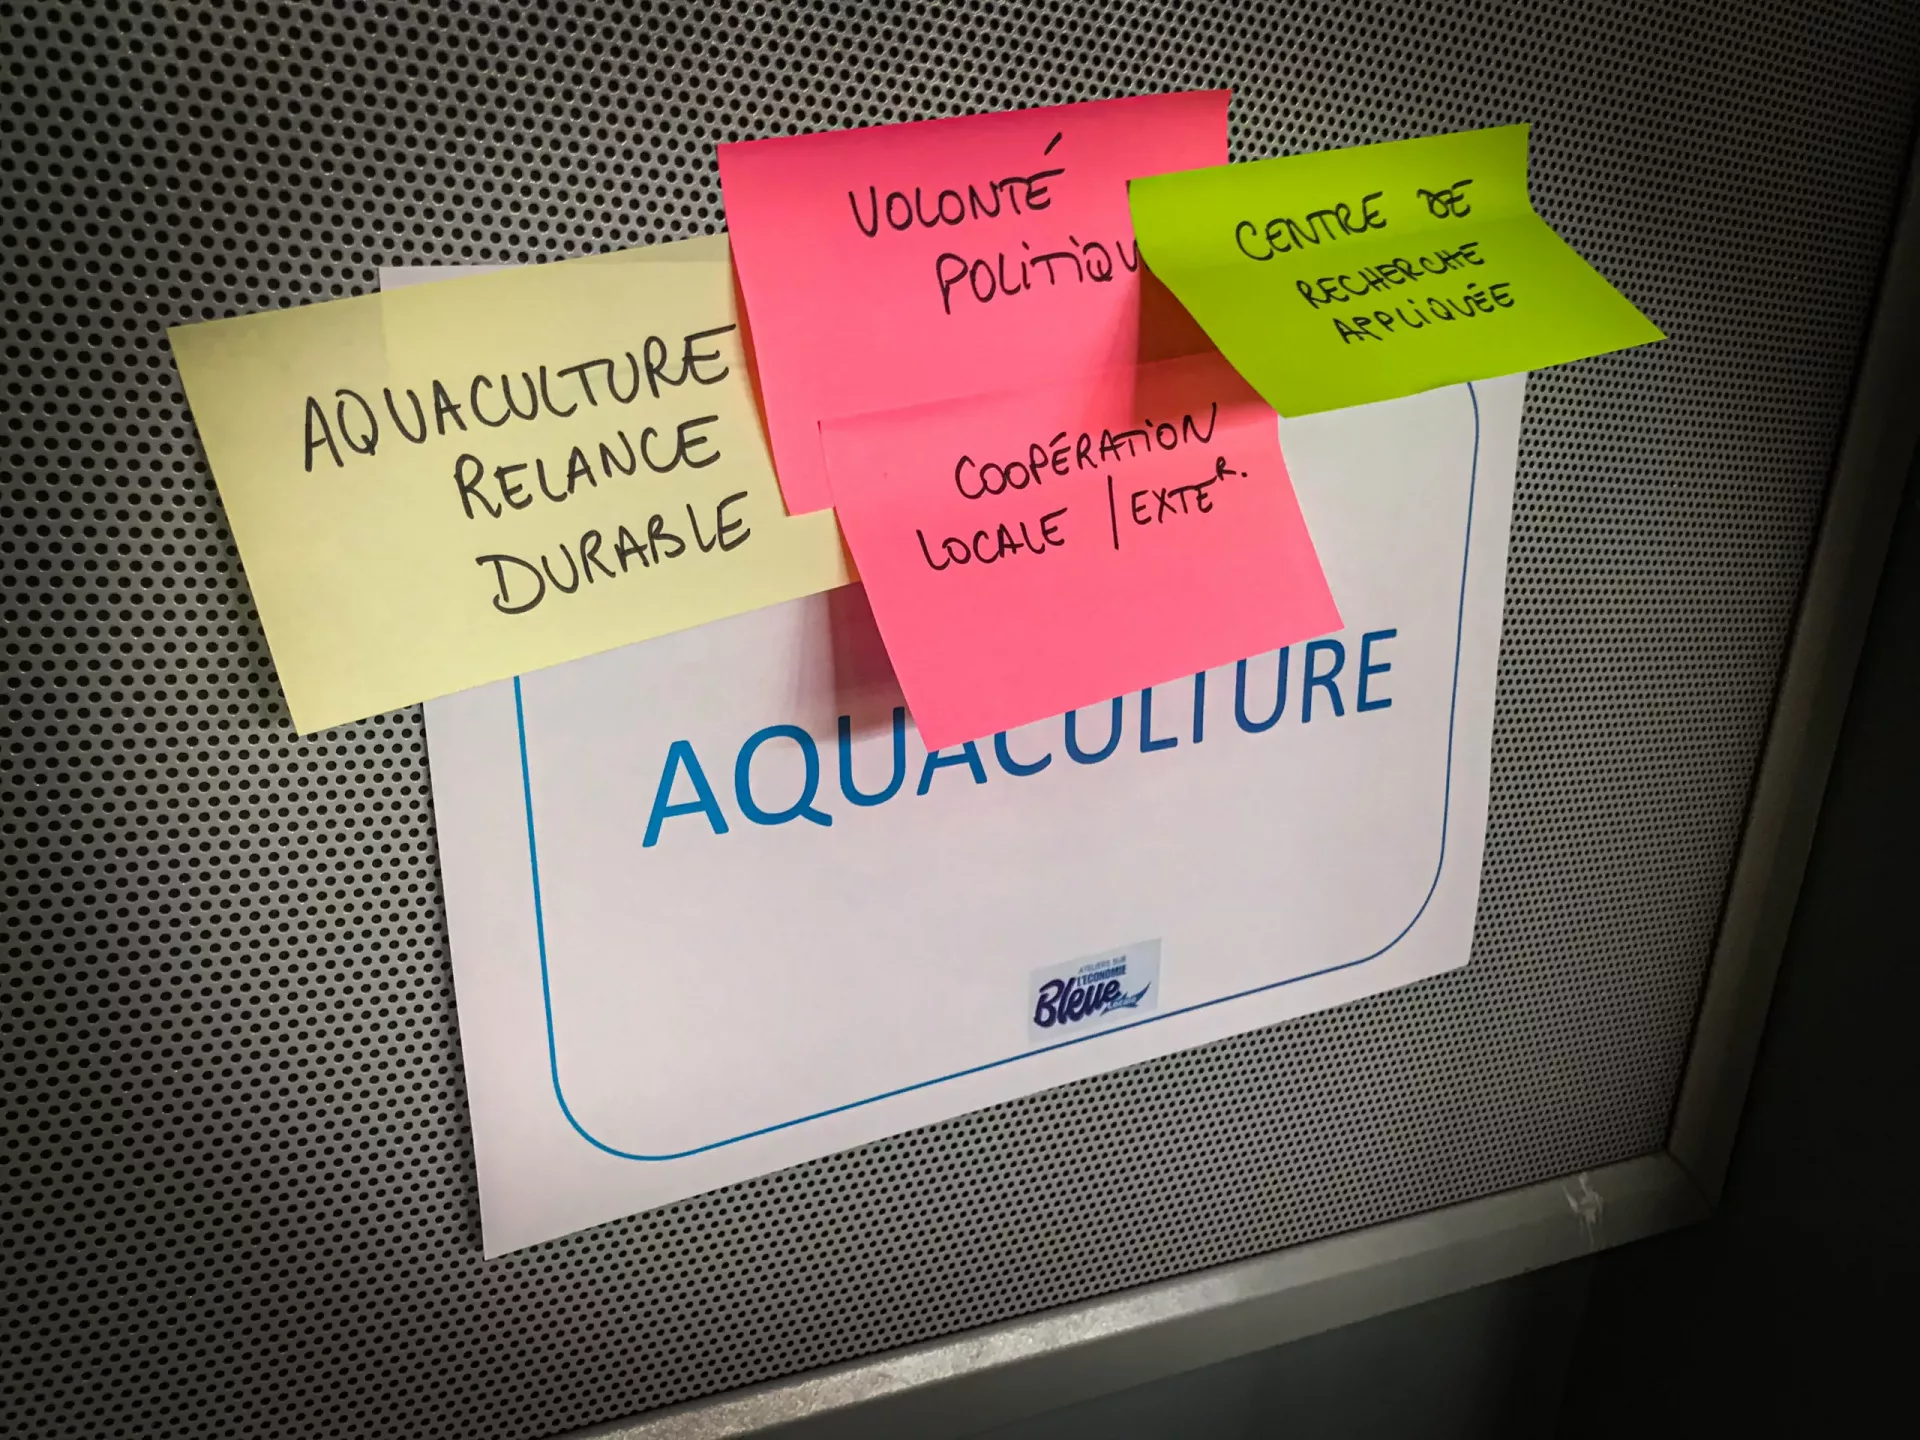 VOLONTÉ
POLITIQU
CENTRE DE
RECHERCHE
APPLIQUÉE
AQUACULTURE
RELANCE
DURABLE
COOPÉRATION
LOCALE / EXTER.
AQUACULTURE
ATELIERS SUR
L'ÉCONOMIE
Bleue